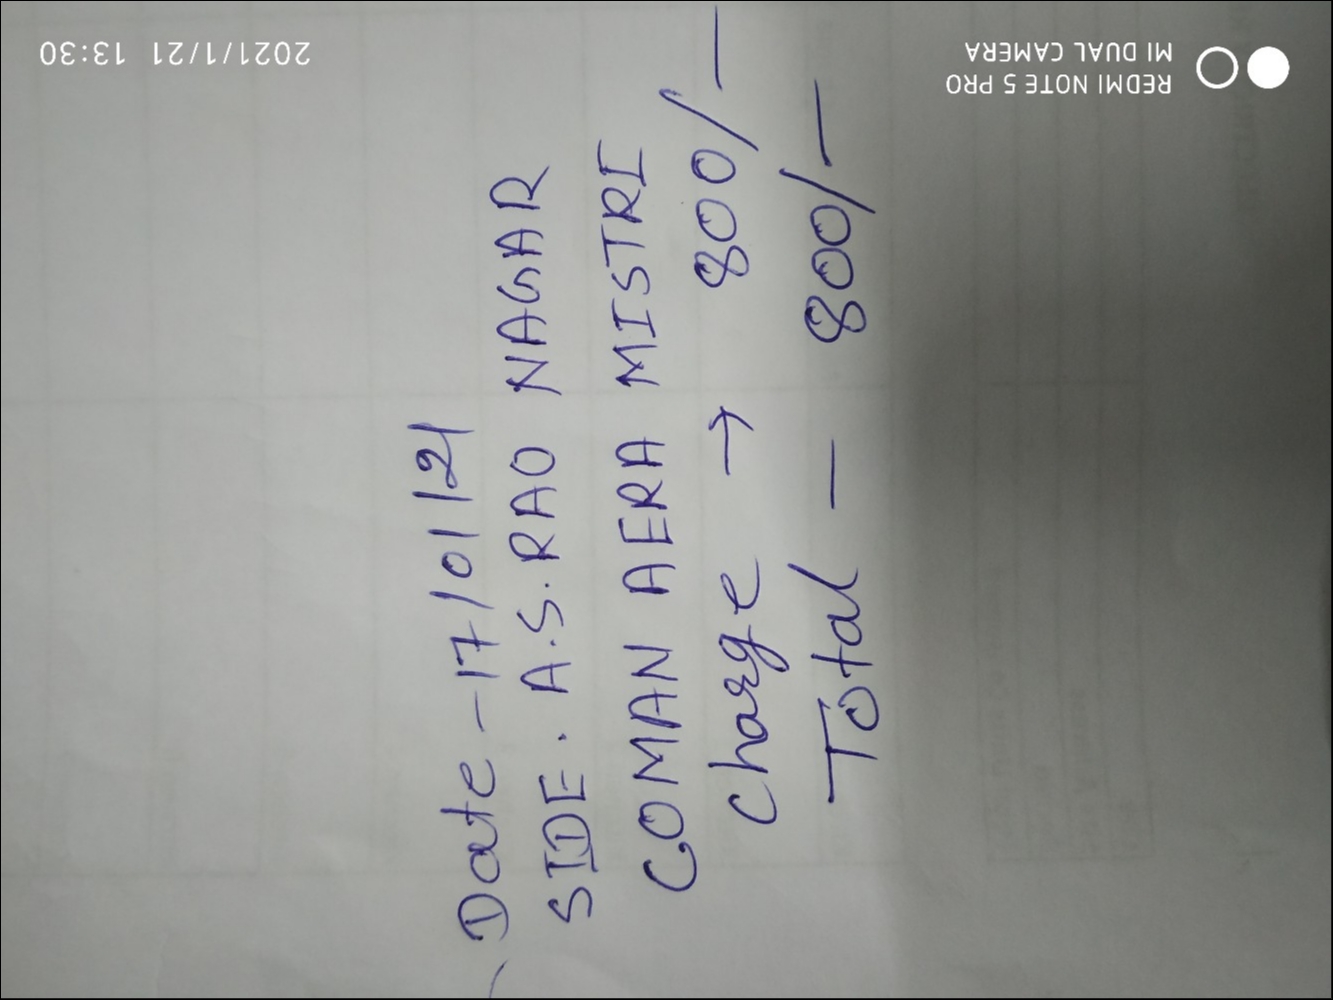 Date - 17/01/21
SIDE. A.S. RAO NAGAR
COMAN AERA MISTRI
Charge → 800/-
Total - 800/-
REDMI NOTE 5 PRO
MI DUAL CAMERA
2021/1/21 13:30